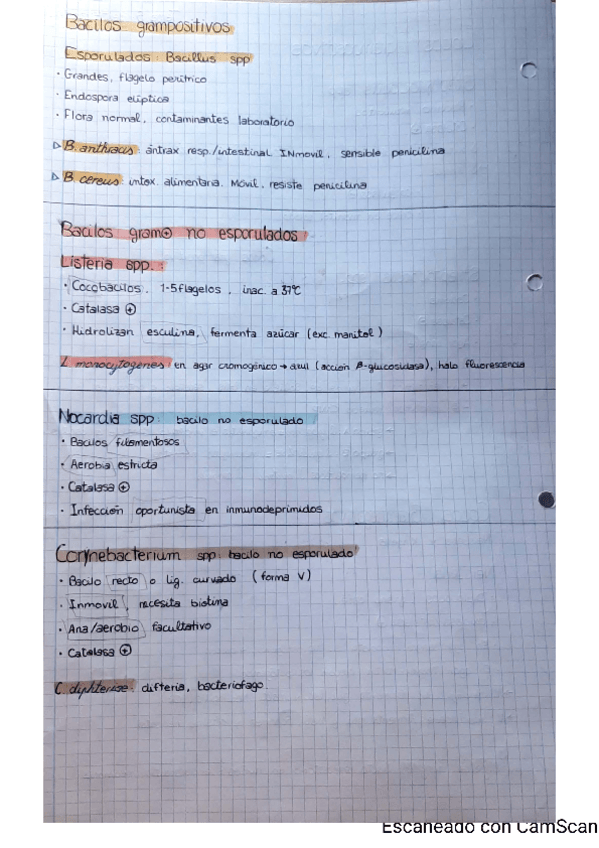 Bacilos grampositivos
Esporulados: Bacillus spp
· Grandes, flagelo peritrico
· Endospora eliptica
· Flora normal, contaminantes laboratorio
▷ B. anthracis: ántrax resp./intestinal. INmovil, sensible penicilina
▷ B. cereus: intox. alimentaria. Móvil, resiste penicilina
Bacilos gram⊕ no esporulados
Listeria spp.:
· Cocobacilos, 1-5 flagelos, inac. a 37°C
· Catalasa ⊕
· Hidrolizan esculina, fermenta azúcar (exc. manitol)
L. monocytogenes en agar cromogénico → azul (acción β-glucosidasa), halo fluorescencia
Nocardia spp: bacilo no esporulado
· Bacilos filamentosos
· Aerobia estricta
· Catalasa ⊕
· Infección oportunista en inmunodeprimidos
Corynebacterium spp: bacilo no esporulado
· Bacilo recto o lig. curvado (forma V)
· Inmovil, necesita biotina
· Ana/aerobio facultativo
· Catalasa ⊕
C. dyhteriae: difteria, bacteriofago.
Escaneado con CamScan